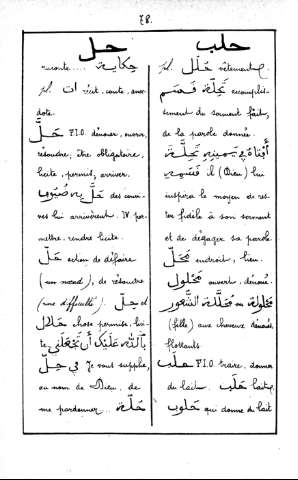 78.
حل
raconte.... حكاية
pl. ات récit, conte, anec-
dote.
حَلَّ F.I.O. dénouer, ouvrir,
résoudre, être obligatoire,
licite, permis, arriver.
حَلَّ به ضُيُوف des convi-
ves lui arrivèrent. IV per-
mettre, rendre licite.
حَلّ action de défaire
(un nœud), de résoudre
(une difficulté). حِلّ et
حَلَال chose permise, lici-
te بِاللّٰهِ عَلَيْكَ أَنْ تَجْعَلَنِي
فِي حِلّ Je vous supplie,
au nom de Dieu, de
me pardonner. حُلَّة
حلب
pl. حُلَل vêtement.
تَحِلَّة قَسَم accomplis-
sement du serment fait,
de la parole donnée.
تَحِلَّة
il (Dieu) lui
inspira le moyen de res-
ter fidèle à son serment
et de dégager sa parole.
مَحَلّ endroit, lieu.
مَحْلُول ouvert, dénoué.
مَحْلُولة ou مُحَلَّلة الشُّعُور
(fille) aux cheveux dénoués,
flottants.
حلب F.I.O. traire, donner
du lait. حَلَب lait.
حَلُوب qui donne du lait